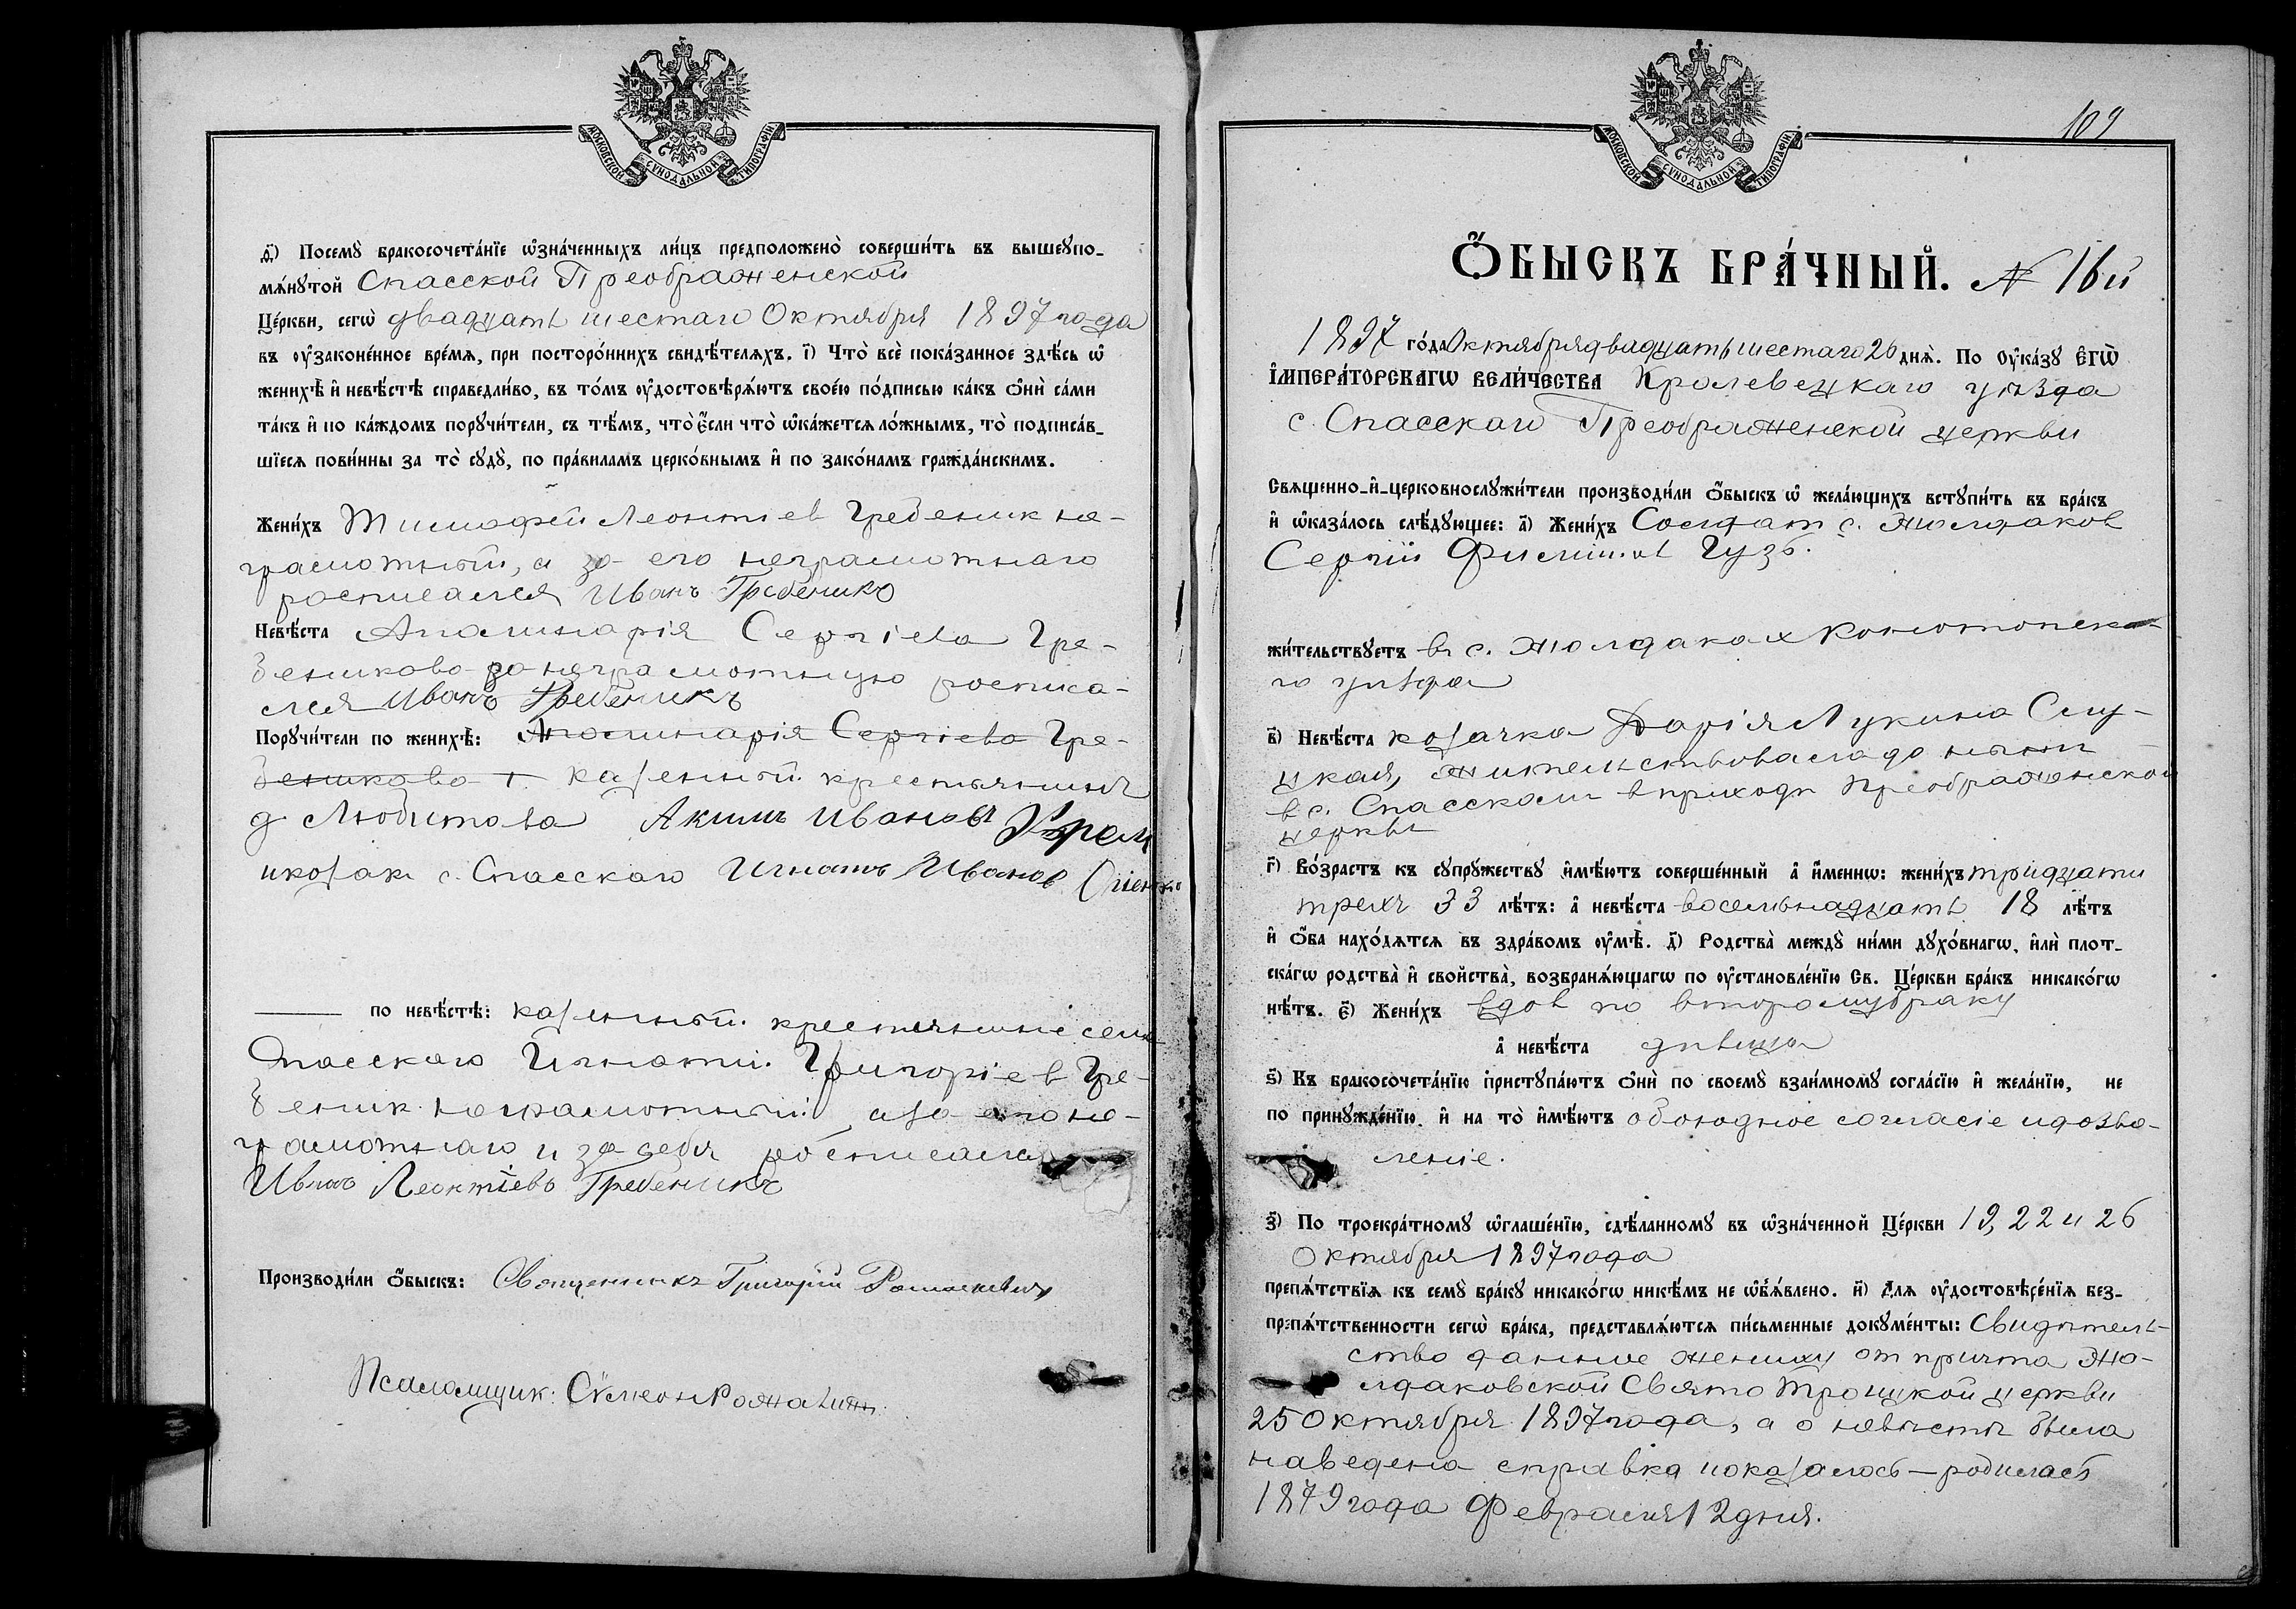 МОСКОВСКОЙ СѴНОДАЛЬНОЙ ТИПОГРАФІИ
д҃) Посемꙋ̀ бракосочета́нїе ѡ҆зна́ченныхъ ли́цъ предположено̀ соверши́ть въ вышеꙋпо-
мѧ́нꙋтой Спасской Преображенской
Це́ркви, сегѡ̀ двадцать шестаго Октября 1897 года
въ ᲂу҆законе́нное вре́мѧ, при посторо́ннихъ свидѣ́телѧхъ. і҃) Что̀ всѐ пока́занное здѣ́сь ѡ҆
женихѣ̀ и҆ невѣ́стѣ справедли́во, въ то́мъ ᲂу҆достовѣрѧ́ютъ свое́ю по́дписью ка́къ ѻ҆нѝ са́ми
та́къ и҆ по ка́ждомъ порꙋчи́тели, съ тѣ́мъ, что̀ є҆́сли что̀ ѡ҆ка́жетсѧ ло́жнымъ, то̀ подписа́в-
шїесѧ пови́нны за то̀ сꙋдꙋ̀, по пра́виламъ церко́внымъ и҆ по зако́намъ гражда́нскимъ.
Жени́хъ Тимофей Леонтіев Гребеник не-
грамотный, а за его неграмотнаго
росписался Иванъ Гребеникъ
Невѣ́ста Апалинарія Сергіева Гре-
беникова за неграмотную росписа-
лся Иванъ Гребеникъ
Порꙋчи́тели по женихѣ̀: Апалинарія Сергіева Гре-
беникова казенный крестьянинъ
д Любитова Акимъ Ивановъ
и козак с. Спасскаго Игнатъ Иванов
по невѣ́стѣ: казенный крестьянинъ села
Спасскаго Игнатий Григоріев Гре-
беник неграмотный, а за его не-
грамотнаго и за себя росписался
Иванъ Леонтіевъ Гребеникъ
Производи́ли ѻ҆́быскъ: Священникъ Григорий
Псаломщик: Симеон
МОСКОВСКОЙ СѴНОДАЛЬНОЙ ТИПОГРАФІИ
109
Ѻ҆́БЫСКЪ БРА́ЧНЫЙ. № 16й
1897 го́да Октября двадцать шестаго 26 днѧ̀. По ᲂу҆ка́зꙋ Є҆ГѠ̀
І҆МПЕРА́ТОРСКАГѠ ВЕЛИ́ЧЕСТВА Кролевецкаго уѣзда
с. Спасскаго Преображенской церкви
Свѧщенно-и҆-церковнослꙋжи́тели производи́ли ѻ҆́быскъ ѡ҆ жела́ющихъ встꙋпи́ть въ бра́къ
и҆ ѡ҆каза́лось слѣ́дꙋющее: а҃) Жени́хъ Солдат с. Жолдаков
Сергій Филипов Гузь.
жи́тельствꙋетъ въ с. Жолдаках Конотопска-
го уѣзда
в҃) Невѣ́ста козачка Дарія Лукина Слу-
цкая, жительствовала до нынѣ
в с. Спасском в приходѣ Преображенской
церкви
г҃) Во́зрастъ къ сꙋпрꙋ́жествꙋ и҆мѣ́ютъ соверше́нный а҆ и҆́меннѡ: жени́хъ тридцати
трехъ 33 лѣ́тъ: а҆ невѣ́ста восемьнадцать 18 лѣ́тъ
и҆ ѻ҆́ба нахо́дѧтсѧ въ здра́вомъ ᲂу҆мѣ̀. д҃) Родства̀ междꙋ̀ ни́ми дꙋхо́внагѡ, и҆лѝ плот-
ска́гѡ родства̀ и҆ свойства̀, возбранѧ́ющагѡ по ᲂу҆становле́нїю Св. Це́ркви бра́къ никако́гѡ
нѣ́тъ. є҃) Жени́хъ вдов по второму браку
а҆ невѣ́ста дѣвица
ѕ҃) Къ бракосочета́нїю пристꙋпа́ютъ ѻ҆нѝ по своемꙋ̀ взаи́мномꙋ согла́сїю и҆ жела́нїю, не
по принꙋжде́нїю. и҆ на то̀ и҆мѣ́ютъ обоюдное согласіе и дозво-
леніе.
з҃) По троекра́тномꙋ ѡ҆глаше́нїю, сдѣ́ланномꙋ въ ѡ҆зна́ченной Це́ркви 19, 22 и 26
Октября 1897 года
препѧ́тствїѧ къ семꙋ̀ бра́кꙋ никако́гѡ никѣ́мъ не ѡ҆б̾ѧ́влено. и҃) Длѧ ᲂу҆достовѣре́нїѧ без-
препѧ́тственности сегѡ̀ бра́ка, представлѧ́ютсѧ пи́сьменные докꙋме́нты: Свидѣтель-
ство данное жениху от причта Жо-
лдаковской Свято Троицкой церкви
25 Октября 1897 года, а о невѣстѣ была
наведена справка и показалось - родилась
1879 года Февраля 12 дня.